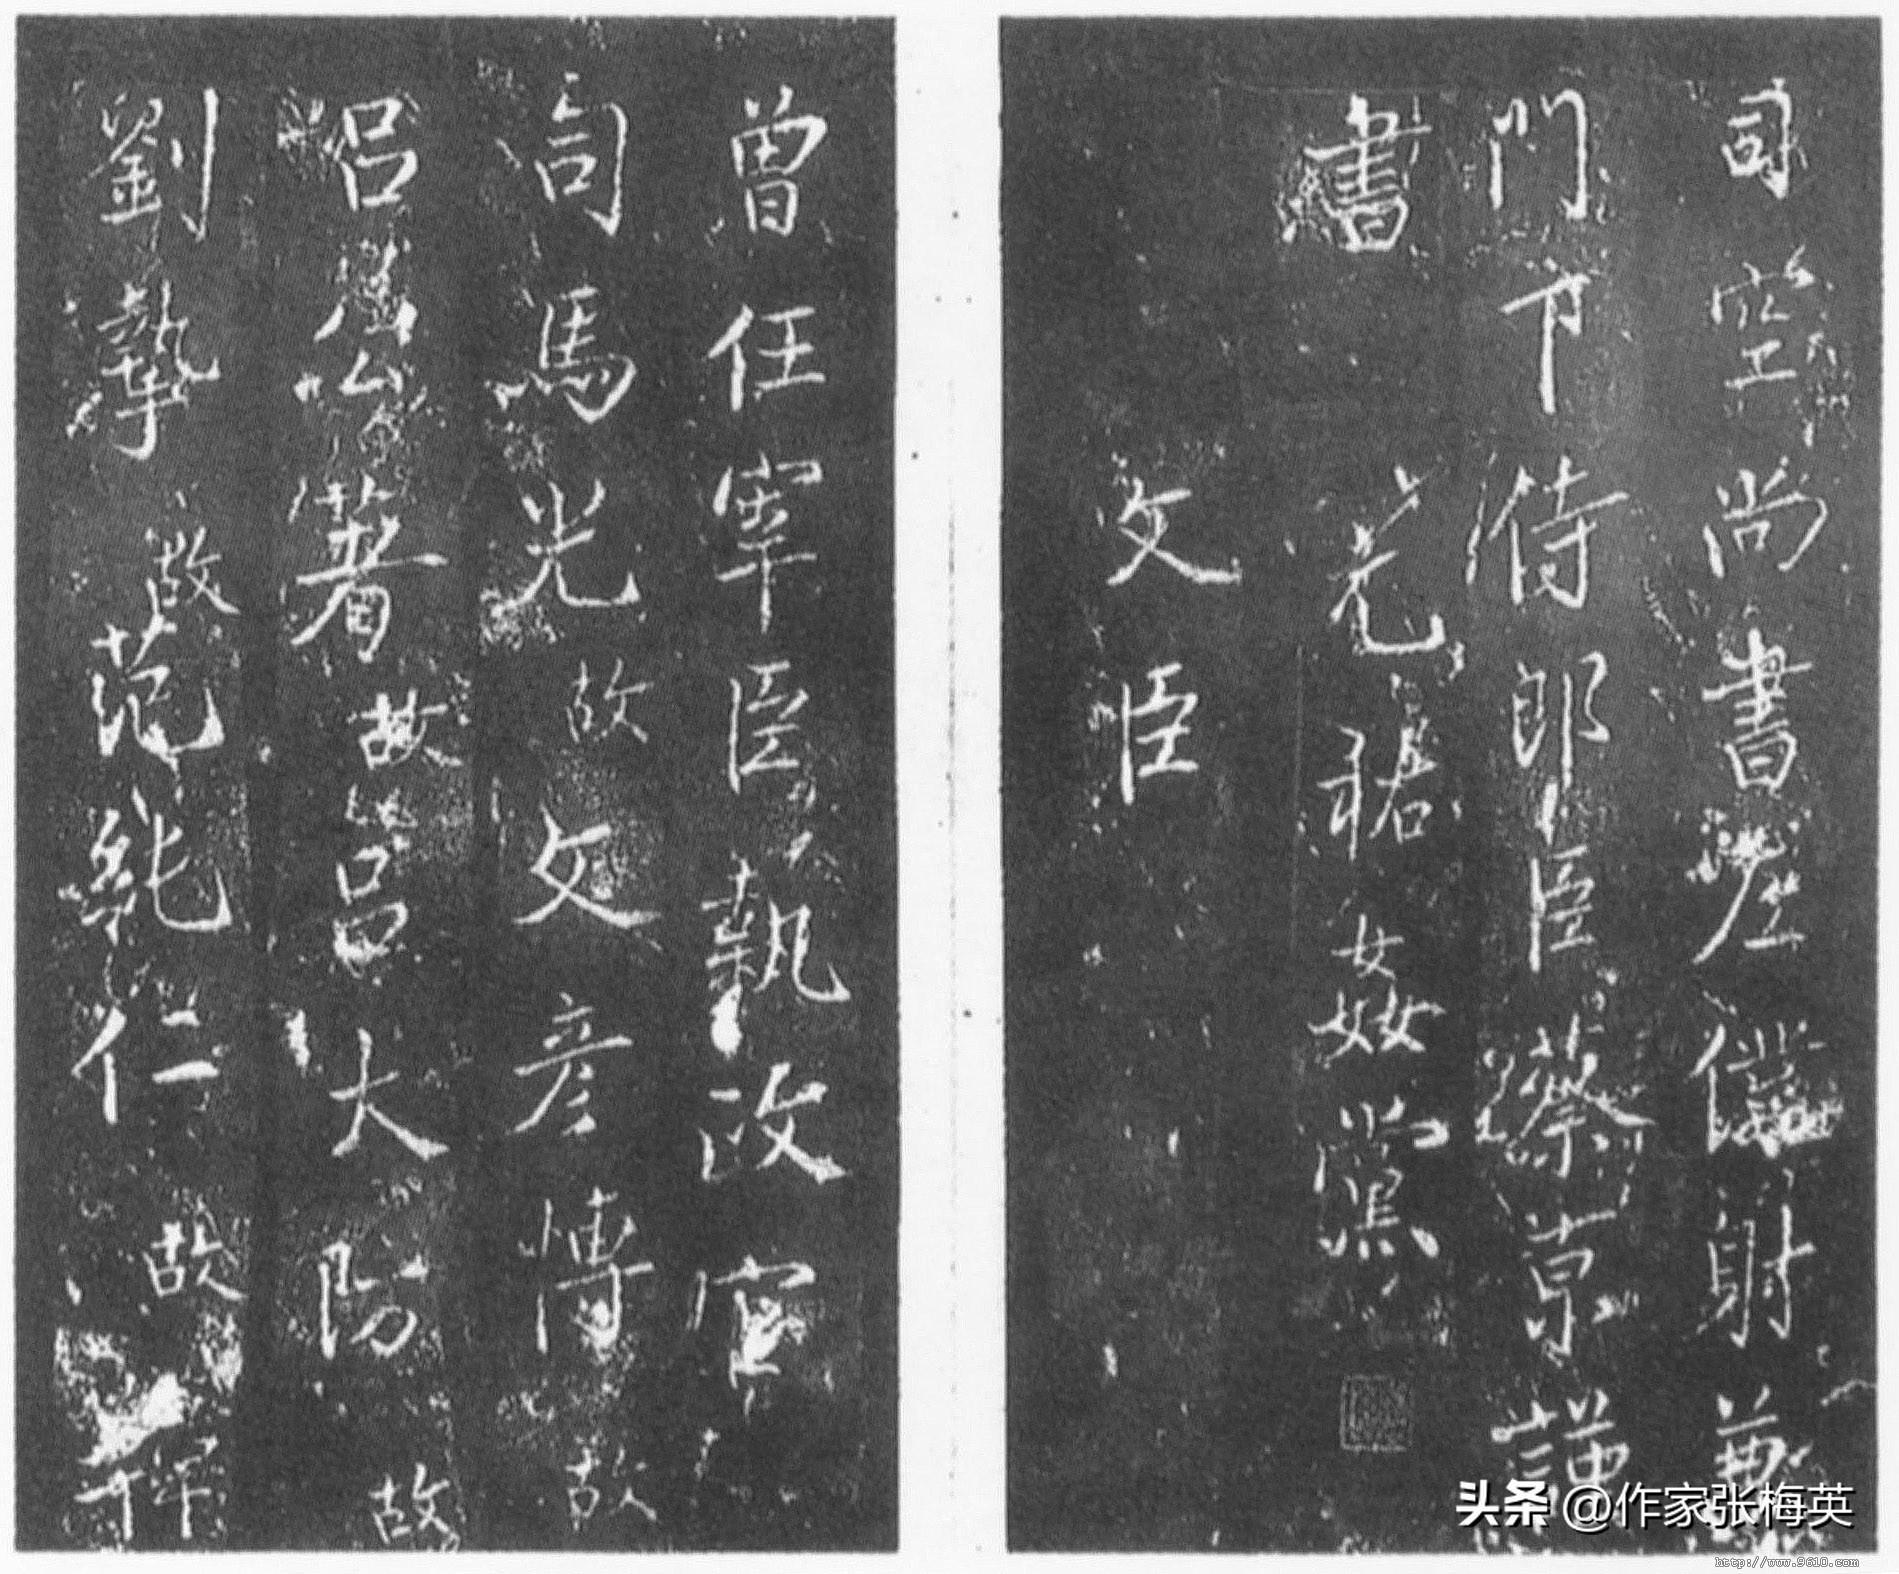 司空尚書左僕射兼
門下侍郎臣蔡京謹
書
元祐姦黨
文臣
曾任宰臣執政官
司馬光 故 文彥博 故
呂公著 故 呂大防 故
劉摯 故 范純仁 故
头条 @作家张梅英
http://www.9610.com